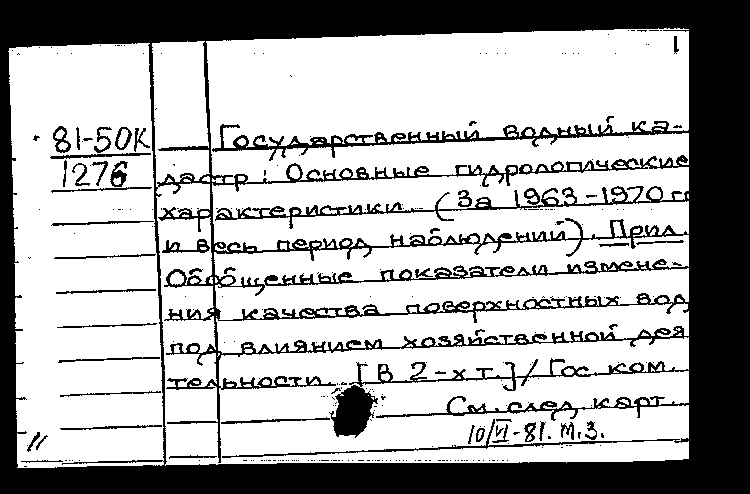 1
81-50К
1276
Государственный водный ка-
дастр: Основные гидрологические
характеристики. (За 1963-1970 гг
и весь период наблюдений). Прил.
Обобщенные показатели измене-
ния качества поверхностных вод
под влиянием хозяйственной дея
тельности. [В 2-х т.] / Гос. ком.
См. след. карт.
10/VI-81. М.З.